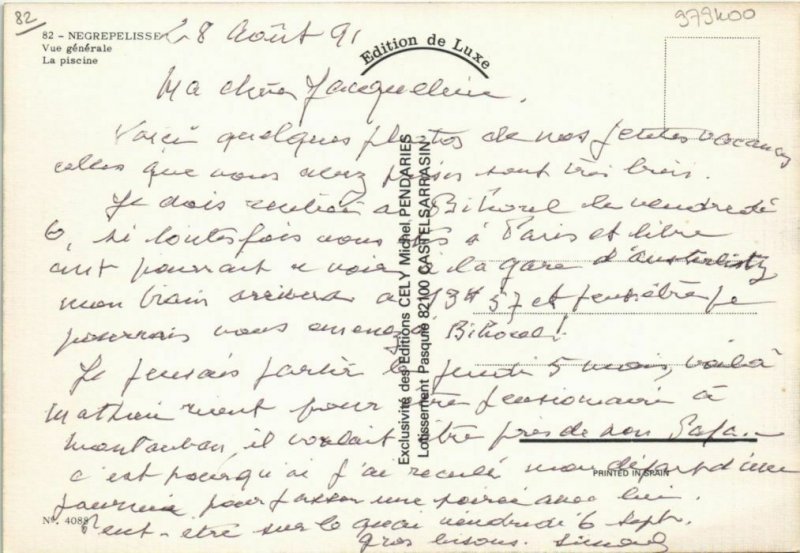 82
979k00
82 - NEGREPELISSE
Vue générale
La piscine
Edition de Luxe
28 Août 91
Ma chère Jacqueline,
Voici quelques photos de nos petites vacances
celles que vous avez passer sont très
Je dois rentrer à Bihorel le vendredi
6, si toutefois vous êtes à Paris et libre
ont pourrait se voir à la gare d'austerlitz
mon train arrivera à 13H57 et peut être je
pourrais vous amener à Bihorel!
Je pensais partir le jeudi 5 mais, voilà
Mathieu vient pour être pensionnaire à
montauban, il voulait être près de son Papa
c'est pourquoi j'ai reculé mon départ d'une
journée pour passer une soirée avec lui.
Peut-etre sur le quai vendredi 6 sept.
gros bisous. Simone
Exclusivité des Editions CELY Michel PENDARIES
Lotissement Pasquie 82100 CASTELSARRASIN
PRINTED IN SPAIN
N°. 4088